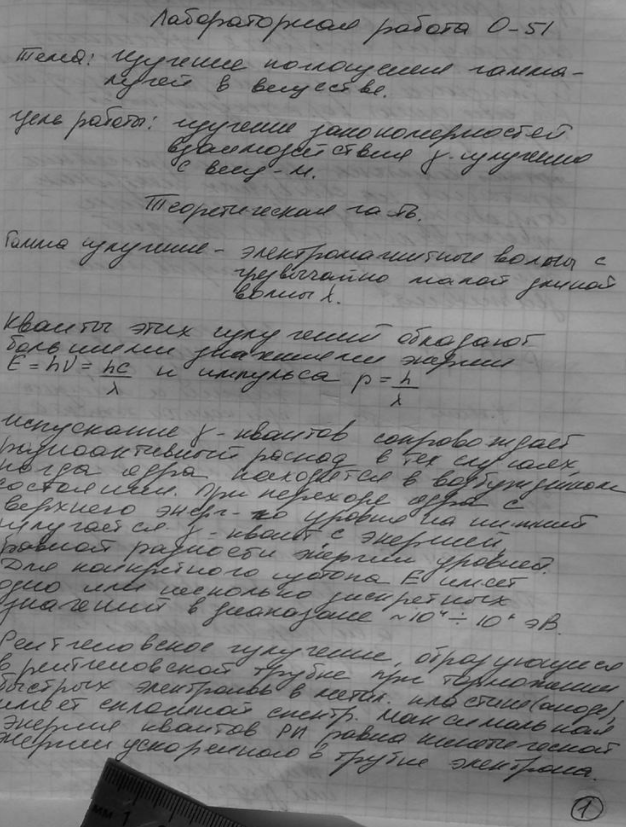 Лабораторная работа О-51
Тема: изучение поглощения гамма-
лучей в веществе.
Цель работы: изучение закономерностей
взаимодействия γ-излучения
с вещ-м.
Теоретическая часть.
Гамма излучение - электромагнитные волны с
чрезвычайно малой длиной
волны λ.
Кванты этих излучений обладают
большими значениями энергии
E = hν = hc/λ и импульса p = h/λ
испускание γ-квантов сопровождает
радиоактивный распад в тех случаях,
когда ядра находятся в возбуждённом
состоянии. При переходе ядра с
верхнего энерг-го уровня на нижний
излучается γ-квант с энергией,
равной разности энергий уровней.
Для конкретного изотопа E имеет
одно или несколько дискретных
значений в диапазоне ~10⁴ ÷ эВ.
Рентгеновское излучение, образующееся
в рентгеновской трубке при торможении
быстрых электронов в метал. пластине (аноде),
имеет сплошной спектр. Максимальная
энергия квантов РИ равна кинетической
энергии ускоренного в трубке электрона.
мм 1
1